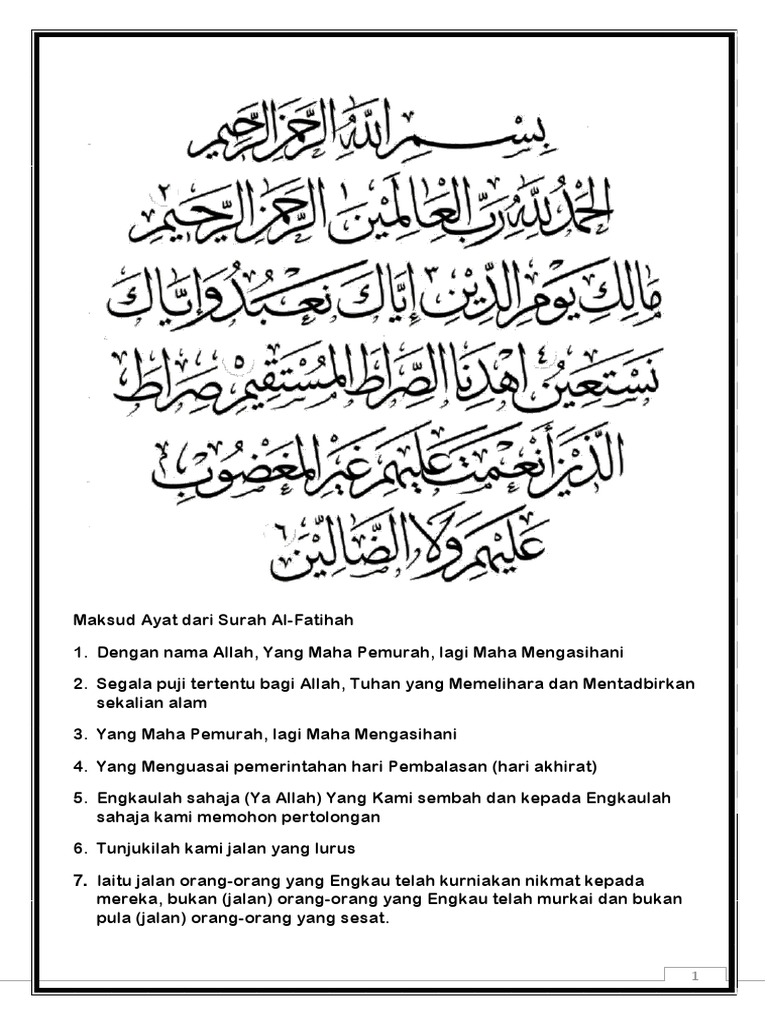 بِسْمِ اللهِ الرَّحْمَنِ الرَّحِيمِ
الْحَمْدُ لِلَّهِ رَبِّ الْعَالَمِينَ ١ الرَّحْمَنِ الرَّحِيمِ ٢
مَالِكِ يَوْمِ الدِّينِ ٣ إِيَّاكَ نَعْبُدُ وَإِيَّاكَ
نَسْتَعِينُ ٤ اهْدِنَا الصِّرَاطَ الْمُسْتَقِيمَ ٥ صِرَاطَ
الَّذِينَ أَنْعَمْتَ عَلَيْهِمْ غَيْرِ الْمَغْضُوبِ
عَلَيْهِمْ وَلَا الضَّالِّينَ ٦
Maksud Ayat dari Surah Al-Fatihah
1. Dengan nama Allah, Yang Maha Pemurah, lagi Maha Mengasihani
2. Segala puji tertentu bagi Allah, Tuhan yang Memelihara dan Mentadbirkan
sekalian alam
3. Yang Maha Pemurah, lagi Maha Mengasihani
4. Yang Menguasai pemerintahan hari Pembalasan (hari akhirat)
5. Engkaulah sahaja (Ya Allah) Yang Kami sembah dan kepada Engkaulah
sahaja kami memohon pertolongan
6. Tunjukilah kami jalan yang lurus
7. Iaitu jalan orang-orang yang Engkau telah kurniakan nikmat kepada
mereka, bukan (jalan) orang-orang yang Engkau telah murkai dan bukan
pula (jalan) orang-orang yang sesat.
1